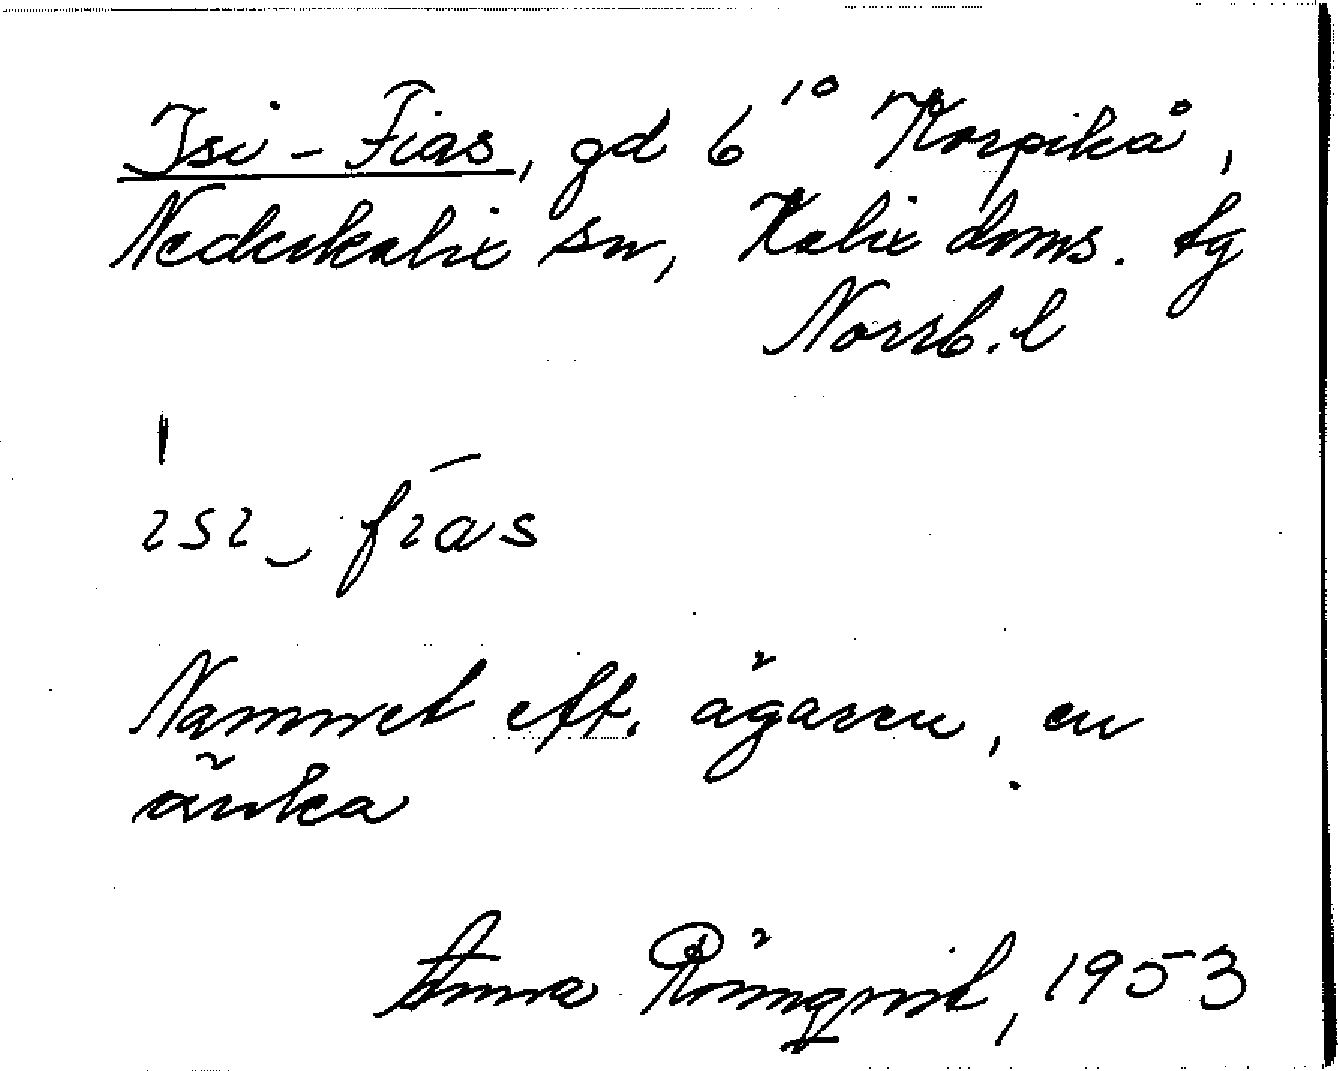 Isi-Fias, gd 6¹⁰ Korpikå,
Nederkalix sn, Kalix doms. tg
Norrb. l
ısı‿fıas
Namnet eft. ägaren, en
änka
Anna Rönnqvist, 1953